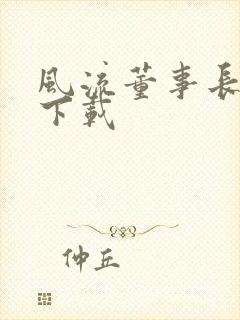 風流董事長
下載
仲丘